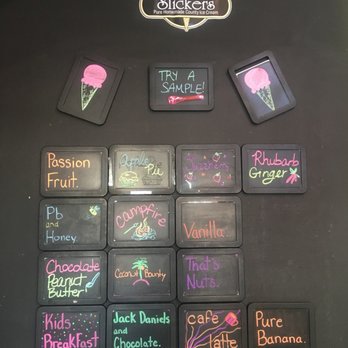 Slickers
Pure Homemade County Ice Cream
TRY A
SAMPLE!
Passion
Fruit.
Apple
Pie
Rhubarb
Ginger
Pb
and
Honey
Campfire
Vanilla.
Chocolate
Peanut
Butter!
Coconut Bounty
That's
Nuts.
Kids
Breakfast
Jack Daniels
and
Chocolate.
cafe
latte
Pure
Banana.